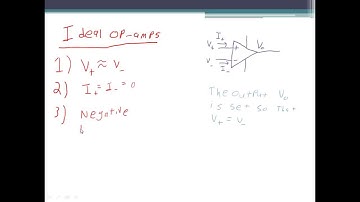 Ideal op-amps
1) V+ ≈ V-
2) I+ = I- = 0
3) Negative
I+
V+
+
Vo
V-
-
I-
The output Vo
is set so that
V+ = V-